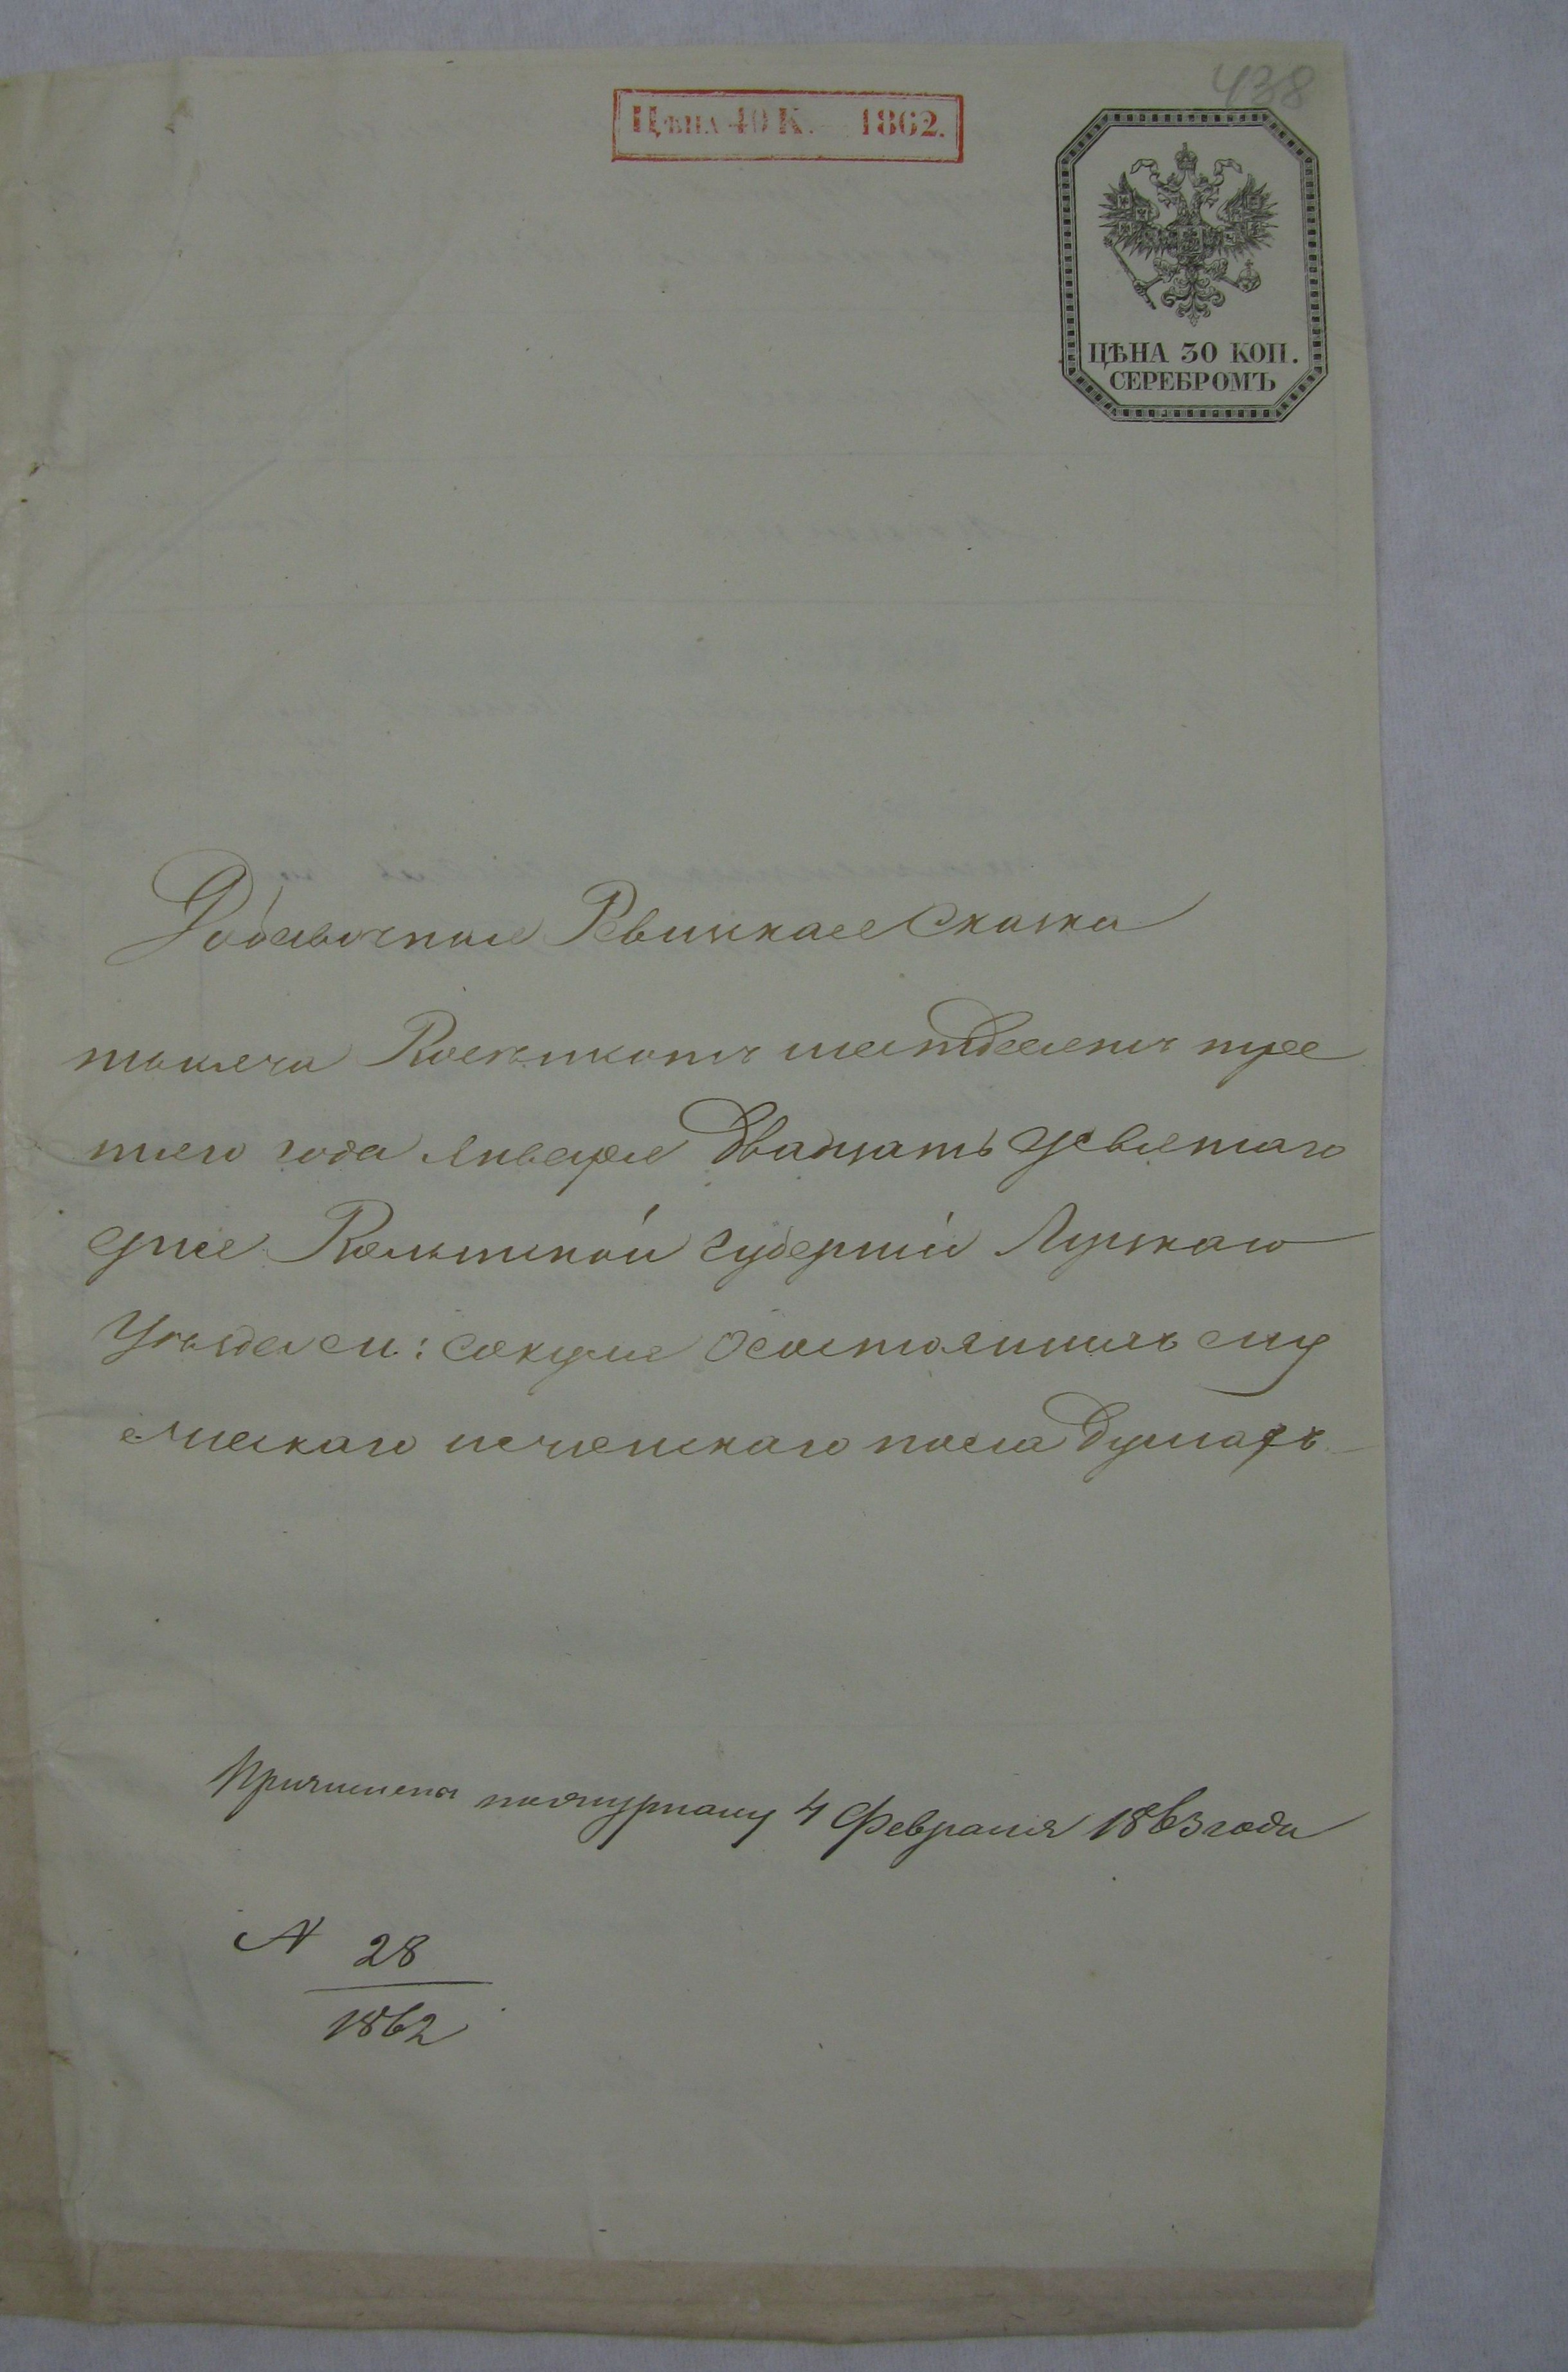 438
Цѣна 40 К. 1862.
ЦѢНА 30 КОП.
СЕРЕБРОМЪ
Добавочная Ревизкая Сказка
тысяча Восемсотъ шестдесятъ тре
тяго года Января двадцать девятаго
дня Волынской губерніи Луцкаго
Уѣзда
мескаго и женскаго пола душахъ
Причислена по журналу 4 Февраля 1863 года
N 28
1862